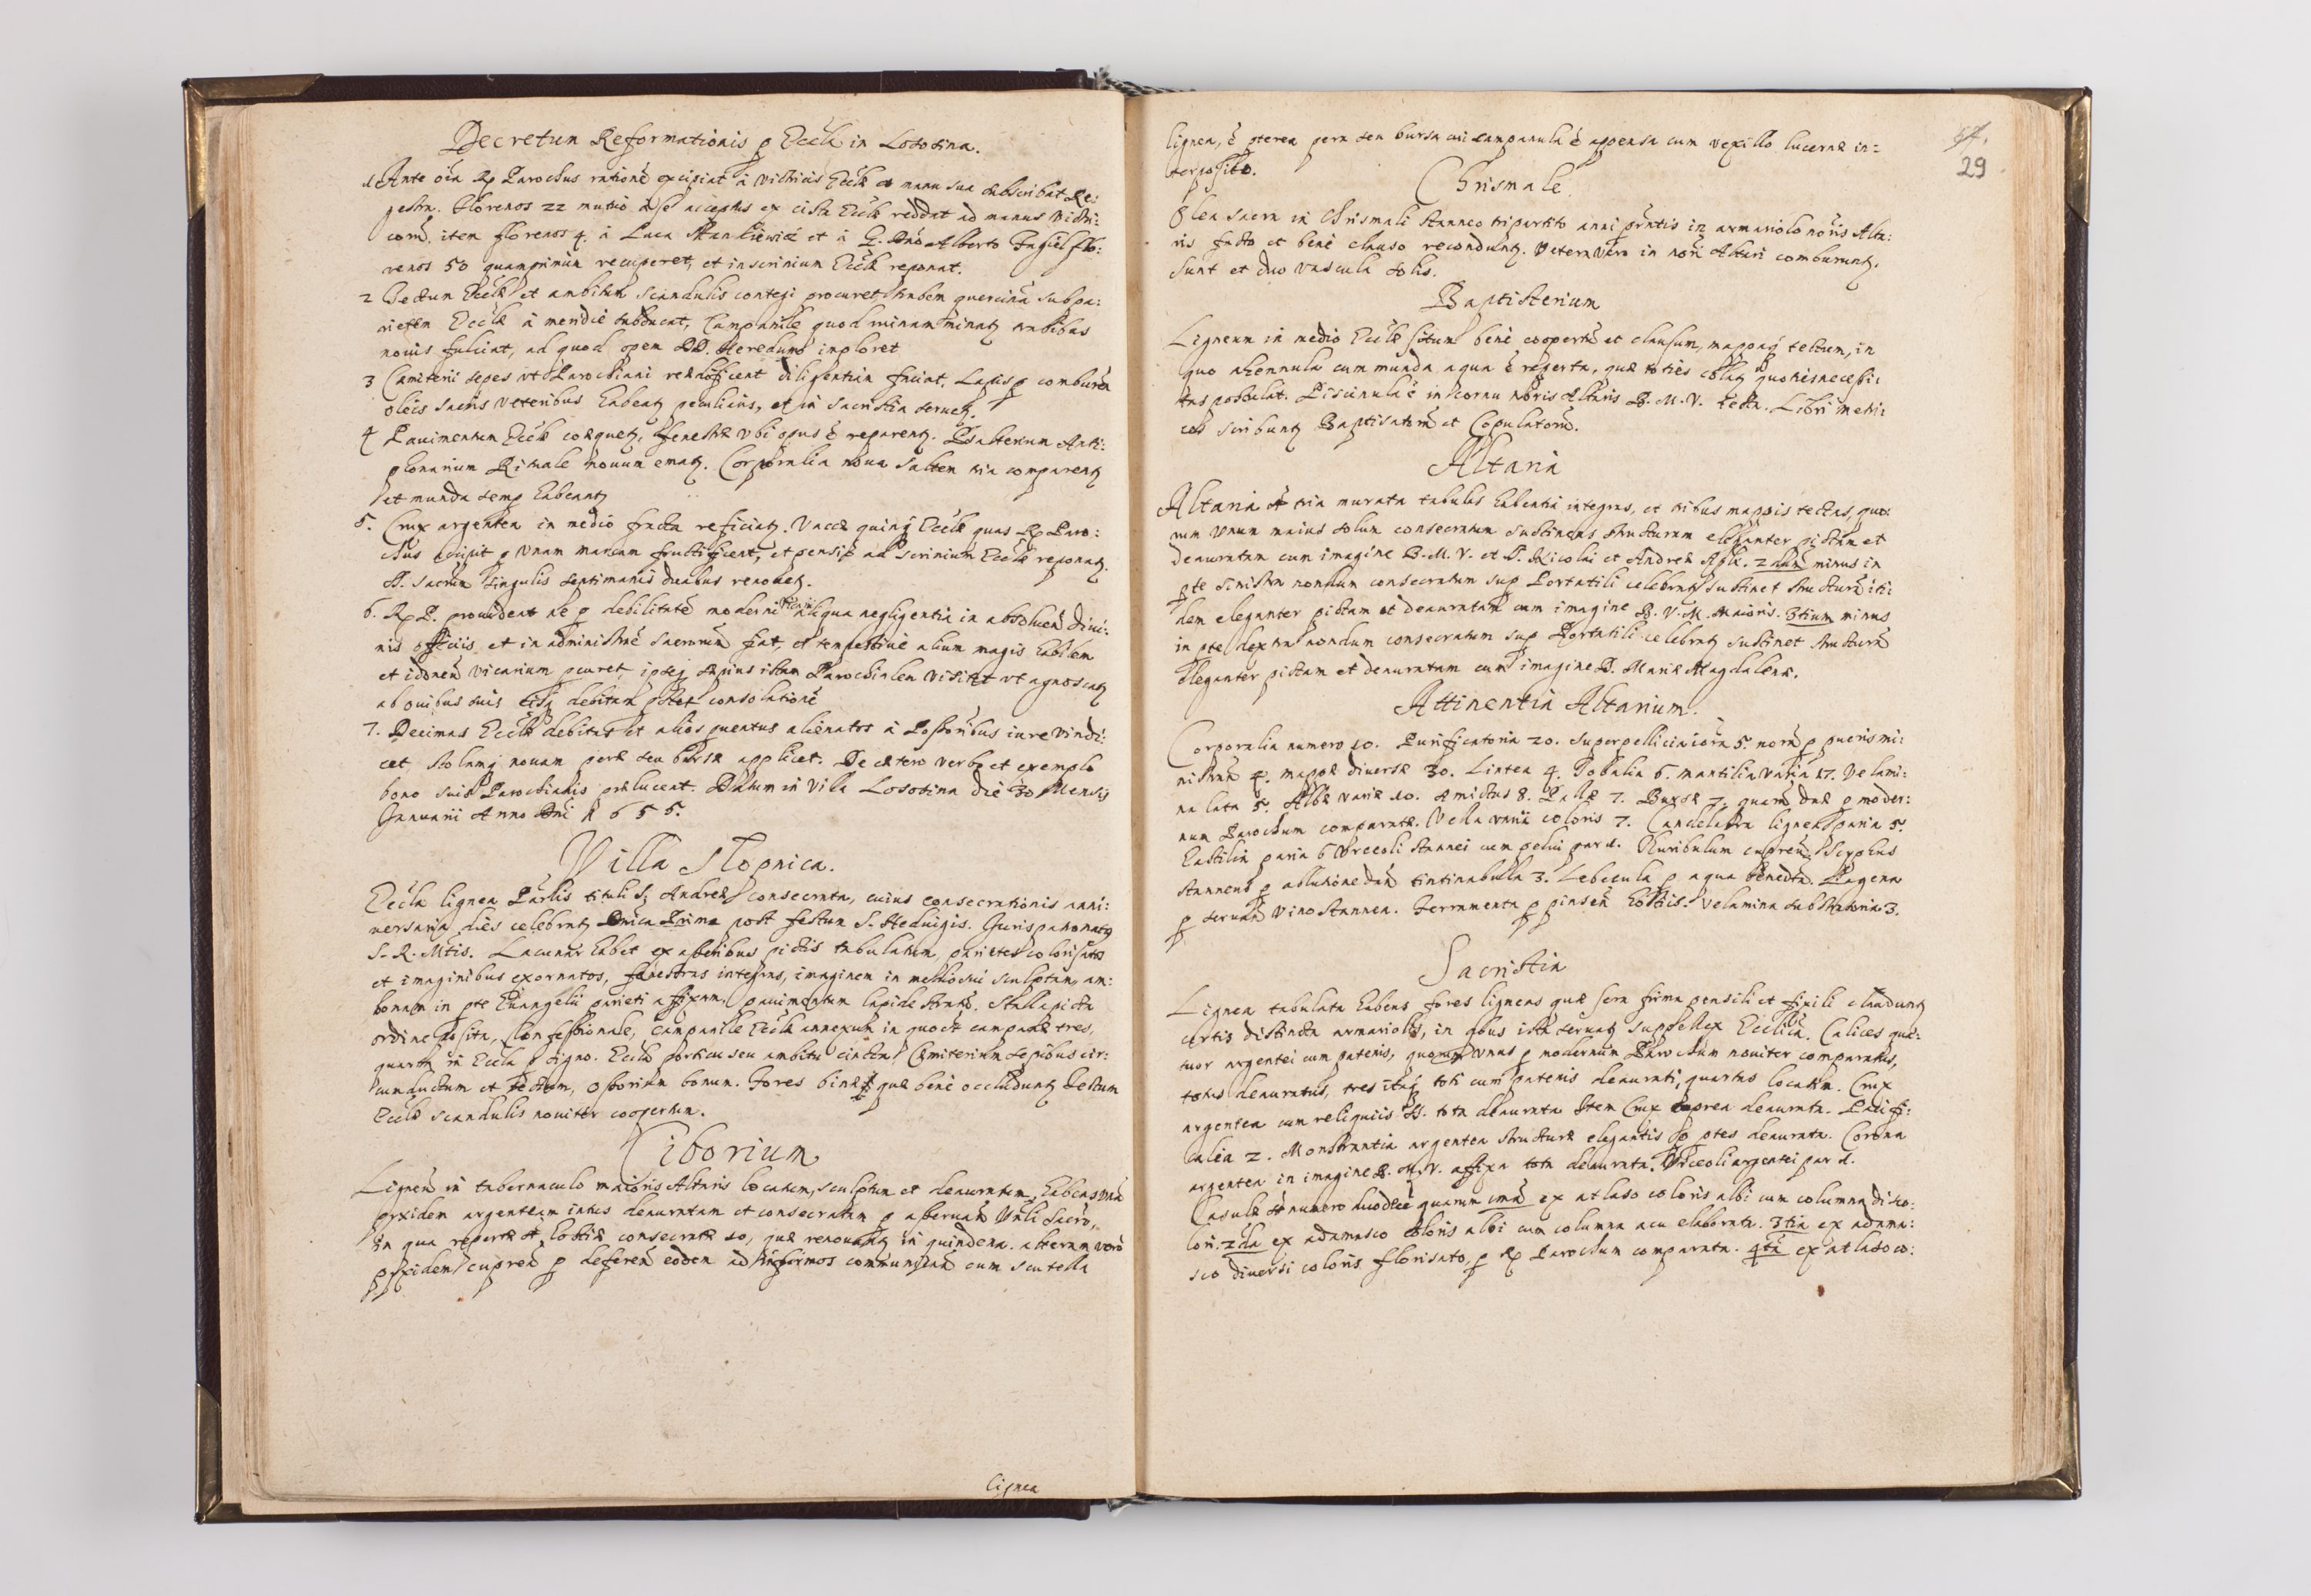 Decretum Reformationis p Eccla in Lososina.
1 Ante oia Rp Parochus rationē excipiat à vitricis Ecclæ et manu sua subscribat Re:
gestra. Florenos 22 mutuo à se acceptos ex cista Ecclæ reddat ad manus Vitri:
corū, item florenos 4. à Luca Stankiewic et à G. Dno Alberto flo:
renos 50 quamprimum recuperet, et in scrinium Ecclæ reponat.
2 Tectum Ecclæ et ambitum scandulis contegi procuret trabem quercinā sub pa:
rietem Ecclæ à meridie subducat, Campanile quod ruinam minatʒ trabibus
nouis fulciat, ad quod opem DD. Heredum imploret
3 Cæmiterii sepes vt Parochiani reædificent diligentiam faciat. Lapis p comburēn
oleis sacris veteribus habeatʒ peculiaris, et in sacristia seruetʒ.
4 Pauimentum Ecclæ coæquetʒ, fenestræ vbi opus ē reparentʒ. Psalterium Anti:
phonarium Rituale nouum ematʒ. Corporalia noua saltem tria comparentʒ
et munda semp habeantʒ
5. Crux argentea in medio fracta reficiatʒ. Vaccæ quinqʒ Ecclæ quas Rp Paro:
chus accipit p vnam marcam fructificent, et pensio ad scrinium Ecclæ reponatʒ.
SS. Sacrum singulis septimanis duabus renouetʒ.
6. Rp P. prouideat ne p debilitatē moderni Vicarii aliqua negligentia in absoluēn diui:
nis officiis et in administrnē sacrorum fiat, et tempestiuè alium magis habilem
et idoneū vicarium pcuret, ipseqʒ sæpius istam Parochialem visitet vt agnoscatʒ
ab ouibus suis eisqʒ debitam pstet consolationē
7. Decimas Ecclæ debitas et alios puentus alienatos à Possoribus iure vindi:
cet, stolamqʒ nouam peræ seu bursæ applicet. De cætero verbo et exemplo
bono suis Parochianis præluceat. Datum in Villa Lososina die 30 Mensis
Januarii Anno Dni 1655.
Villa Slopnica.
Eccla lignea Parlis tituli S. Andreæ consecrata, cuius consecrationis anni:
versaria dies celebratʒ Dnica Prima post festum S. Heduigis. Juris patronatʒ
S. R. Mtis. Lacunar habet ex asseribus pictis tabulatum, parietes colorisatos
et imaginibus exornatos, fenestras integras, imaginem in medio sui sculptam, am:
bonam in pte Euangelii parieti affixam, pauimentum lapide stratū. Stalla picta
ordine posita, Confessionale, Campanile Ecclæ annexum in quo st campanæ tres,
quarta in Eccla p signo. Eccla porticu seu ambitu cincta, Cæmiterium sepibus cir:
cumductum et tectum, Ossorium bonum. Fores binæ st quæ benè occluduntʒ Tectum
Ecclæ scandulis nouiter coopertum.
Ciborium
Ligneū in tabernaculo maioris Altaris locatum, sculptum et deauratum, habens vnā
pyxidem argenteam intus deauratam et consecratam p asseruāń Vnli Sacro,
in qua repertæ st hostiæ consecratæ 10, quæ renouantʒ in quindena. alteram verò
pyxidem cupreā p deferēn eodem ad infirmos communicāń cum scutella
lignea
lignea, ē pterea pera seu bursa cui campanula ē appensa cum vexillo lucernæ in:
terposito.
29
Chrismale
Olea sacra in Chrismali stanneo tripartito anni pntis in armariolo noris Alta:
ris facto et benè clauso reconduntʒ. Vetera verò in nori Altari comburuntʒ.
Sunt et duo vascula solis.
Baptisterium
Ligneum in medio Ecclæ situm benè coopertū et clausum, mappaqʒ tectum, in
quo ahennula cum munda aqua ē reperta, quæ toties colatʒ quoties necessi:
tas postulat. Piscinula ē in cornu noris Altaris B. M. V. facta. Libri metri:
ces scribuntʒ Baptisatorū et Copulatorū.
Altaria
Altaria st tria murata tabulas habentia integras, et tribus mappis tectas, quo:
rum vnum maius solum consecratum sustinens structuram eleganter pictam et
deauratam cum imagine B. M. V. et S. Nicolai et Andreæ Apli. 2dum minus in
pte sinistra nondum consecratum sup Portatili celebratʒ sustinet structurā iti:
dem eleganter pictam et deauratam cum imagine B. V. M. Maioris. 3tium minus
in pte dextra nondum consecratum sup Portatili celebratʒ sustinet structurā
eleganter pictam et deauratam cum imagine S. Mariæ Magdalenæ.
Attinentia Altarium.
Corporalia numero 10. Purificatoria 20. Superpellicia iora 5. nora p pueris mi:
nistrāń 4. mappæ diuersæ 30. Lintea 4. Tobalia 6. mantilia varia 17. Velami:
na lata 5. Albæ variæ 10. Amictus 8. Pallæ 7. Bursæ 7. quarū duæ p moder:
num Parochum comparatæ. Vela varii coloris 7. Candelabra lignea paria 5.
hastilia paria 6 Vrceoli stannei cum pelui par 1. Thuribulum cupreū. Scyphus
stanneus p ablutione dāń tintinabula 3. Lebecula p aqua benedta. Lagena
p seruāń vino stannea. Ferramenta p pinsēn hostiis. Velamina substratoria 3.
Sacristia
Lignea tabulata habens fores ligneas quæ sera firma pensili et fixili claudunts
certis distincta armariolis, in qbus ista seruatʒ suppellex Ecclica. Calices qua:
tuor argentei cum patenis, quorum vnus p modernum Parochum nouiter comparatus,
totus deauratus, tres itaqʒ toti cum patenis deaurati, quartus locatim. Crux
argentea cum reliquiis SS. tota deaurata Item Crux cuprea deaurata. Pacifi:
calia 2. Monstrantia argentea structuræ elegantis p ptes deaurata. Corona
argentea in imagine B. M. V. affixa tota deaurata. Vrceoli argentei par 1.
Casulæ st numero duodecē quarum ima ex atlaso coloris albi cum columna disco:
lori. 2da ex adamasco coloris albi cum columna acu elaborata. 3tia ex adama:
sco diuersi coloris florisato, p Rp Parochum comparata. 4ta ex atlaso co: